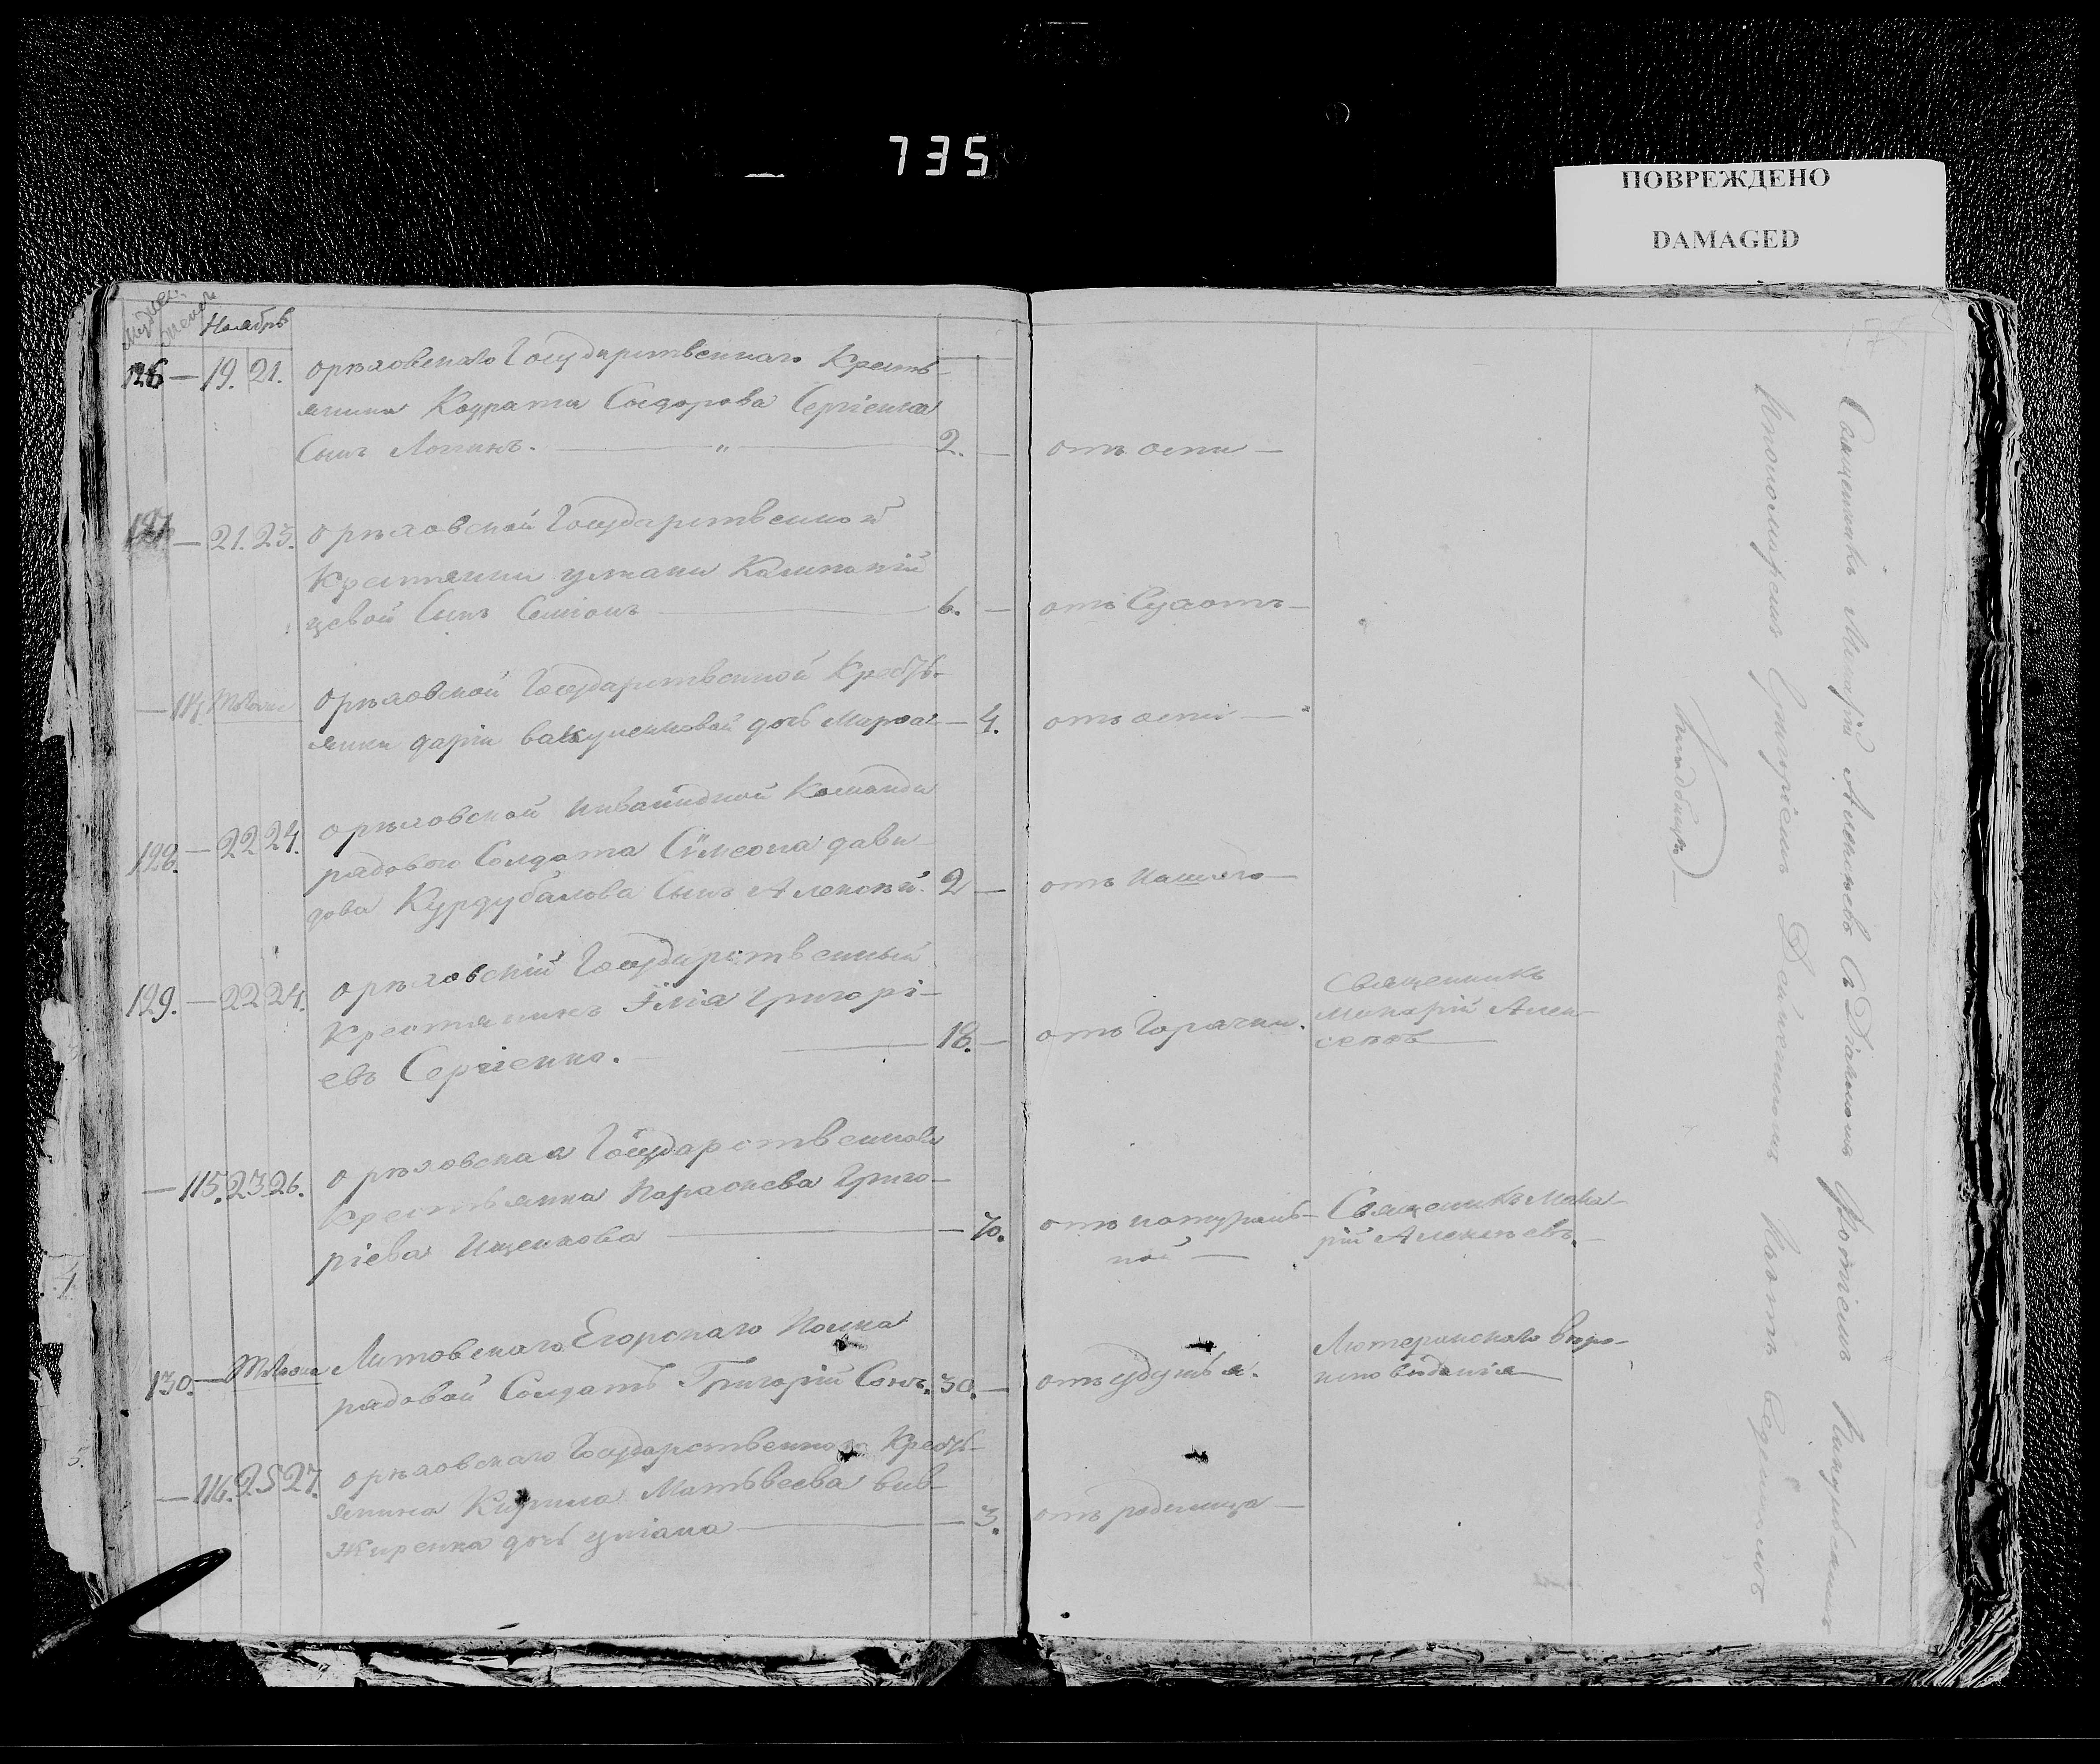 735
ПОВРЕЖДЕНО
DAMAGED
Ноябрь
126 — 19. 21. Орѣховскаго Государственнаго Кресть-
янина Кодрата Сидорова Сергіенка
Сынъ Логинъ. — 2. — отъ оспи —
127 — 21. 23. Орѣховской Государственной
Крестянки
цевой Сынъ Семіонъ — 6. — отъ Сухотъ —
— 114. Орѣховской Государственной Кресть-
янки Даріи Вакуленковой дочь — 4. отъ оспи —
128. — 22 24. Орѣховской Инвалидной Команди
рядового Солдата Сѵмеона Дави-
дова Курдубалова Сынъ Алексѣй. 2 — отъ Кашлю —
129. — 22 24. Орѣховскій Государственный
Крестянинъ Иліа Григорі-
евъ Сергіенко. — 18. — отъ Горячки. Священникъ
Макарій Алек-
сеевъ —
— 115. 23 26. Орѣховская Государственная
Крестьянка Параскева Григо-
ріева Ищенкова — 70. отъ натураль-
ной — Священикъ Мака-
рій Алексѣевъ. —
130. — Литовскаго Егорскаго Полка
рядовой Солдатъ Григорій 30. — отъ удушья. Лютеранскаго вѣро-
исповѣданія —
— 116. 25 27. Орѣховскаго Государственнаго Кресть-
янина Кирила Матвѣева Бив-
жиренка дочь уліана — 3. отъ родимца —
Священикъ Макарій Алексѣевъ съ Діакономъ Фотіемъ
Григоріемъ
Кладбищѣ —